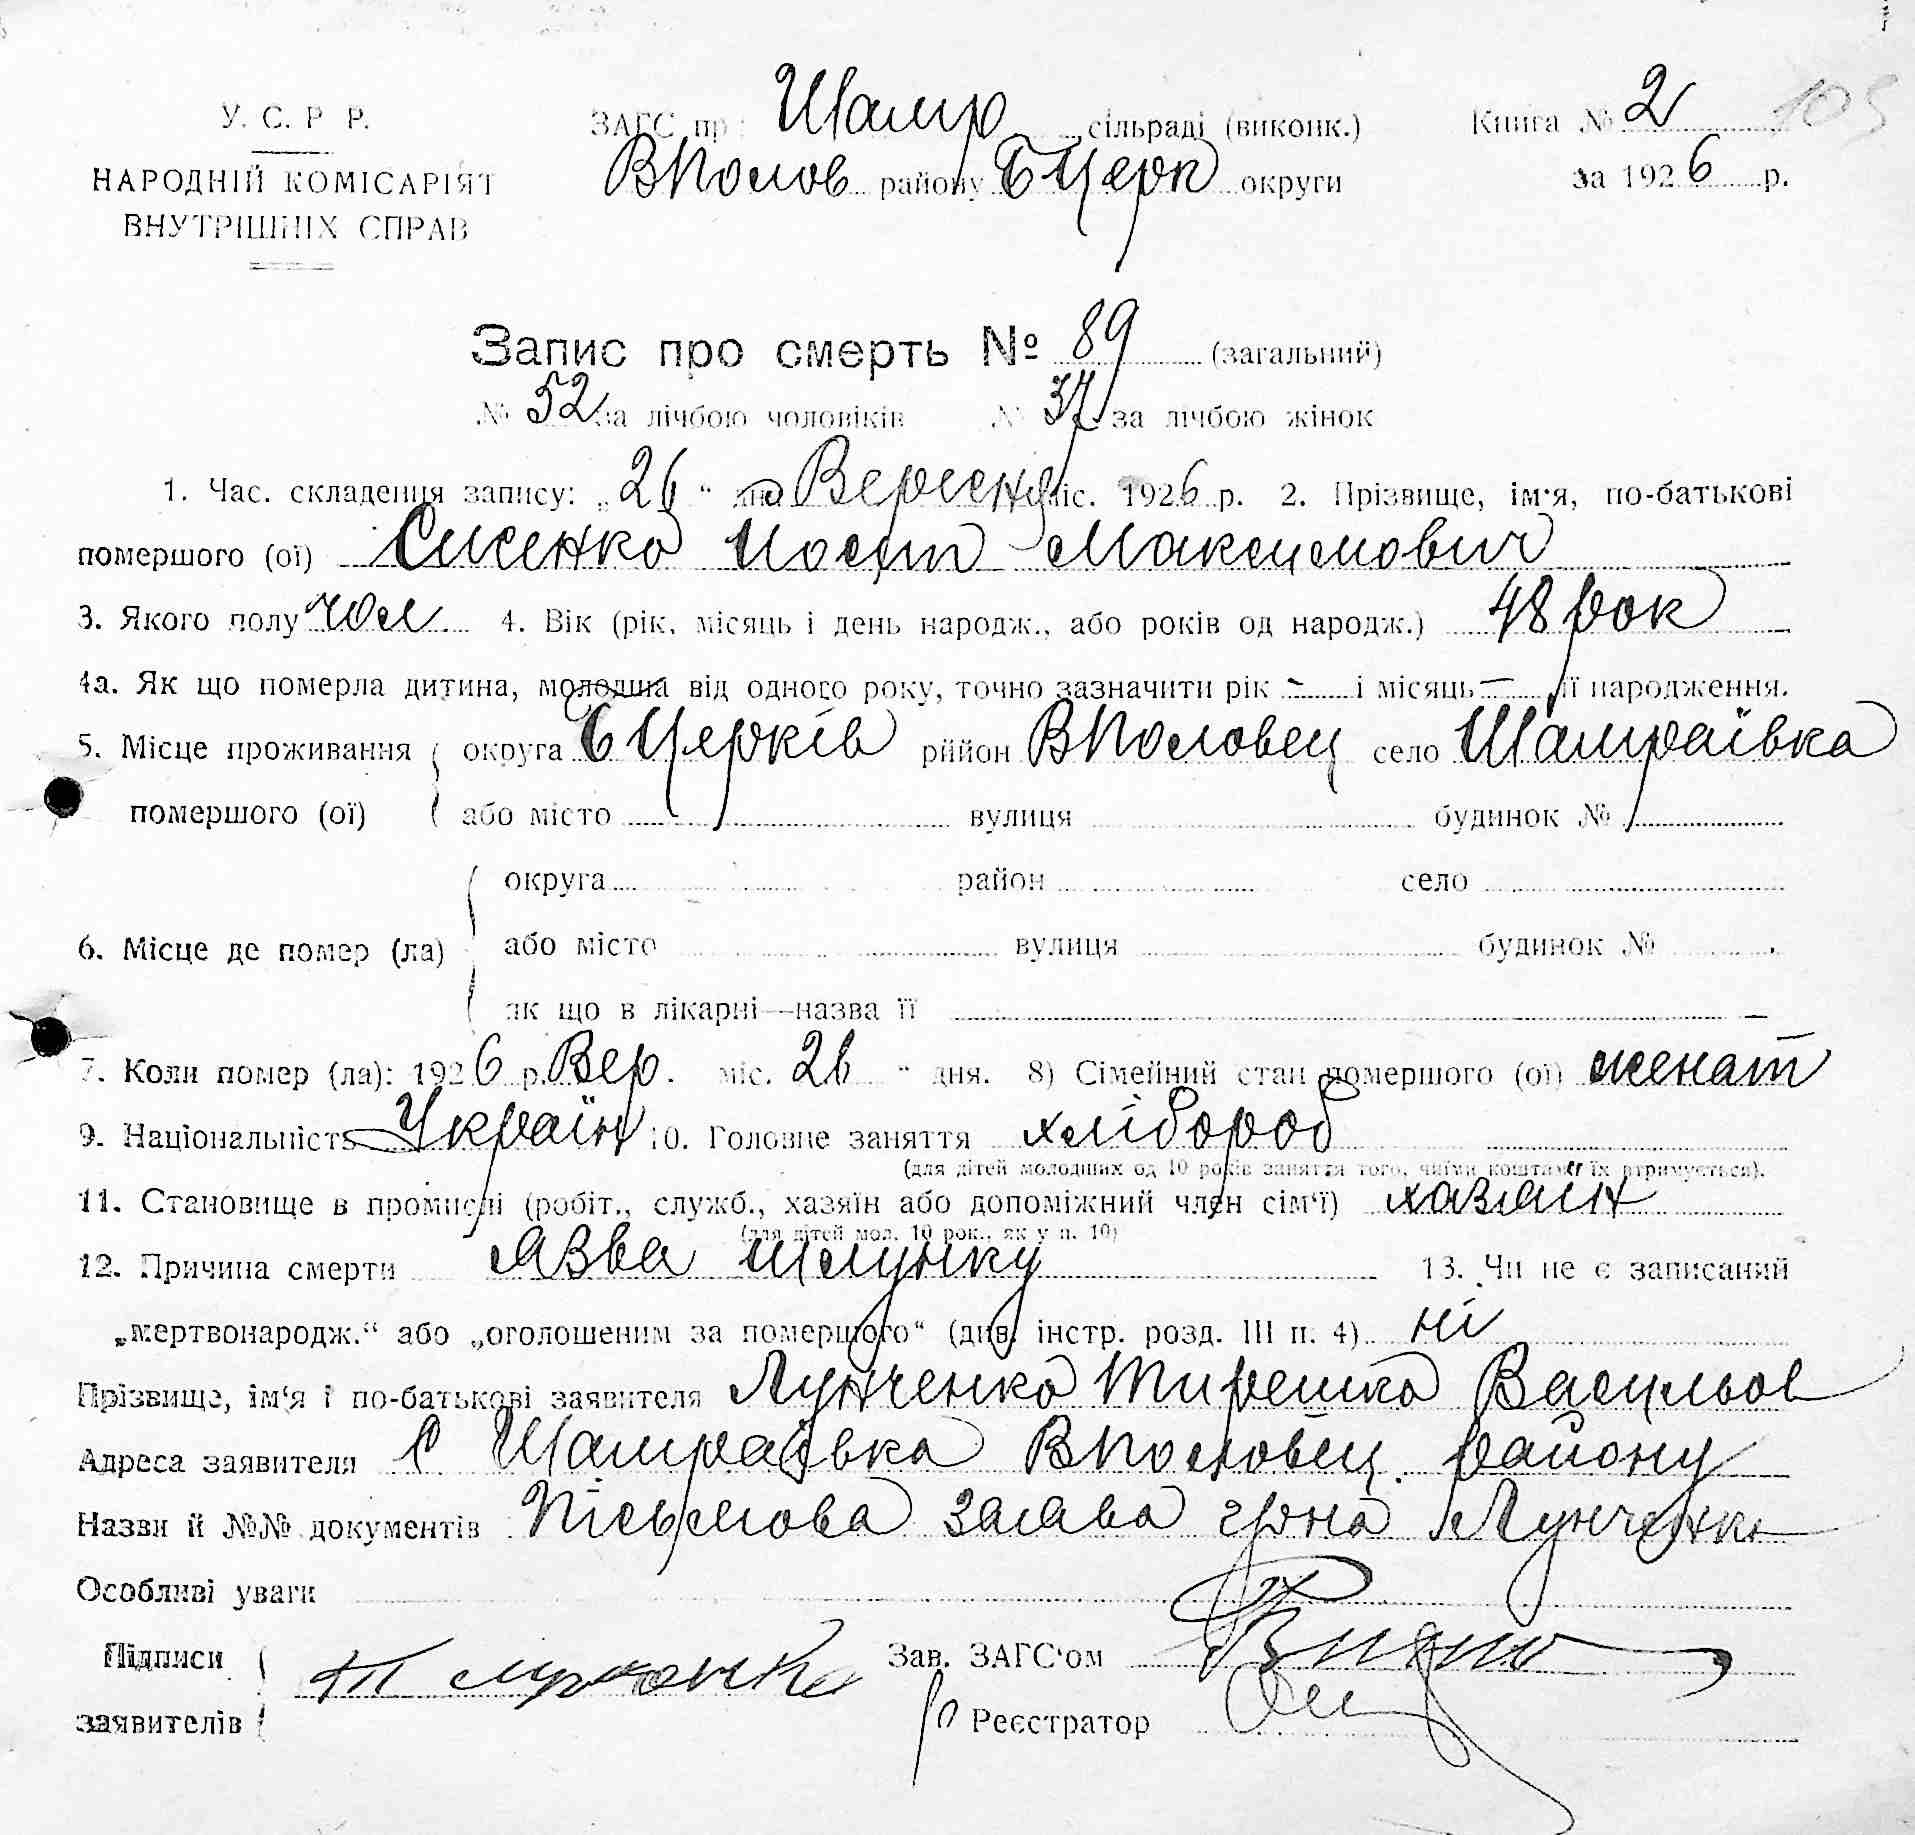 У. С. Р Р.
НАРОДНІЙ КОМІСАРІЯТ
ВНУТРІШНІХ СПРАВ
ЗАГС пр Шамр сільраді (виконк.)
ВПолов району БЦерк округи
Книга № 2
105
за 1926 р.
Запис про смерть № 89 (загальний)
№ 52 за лічбою чоловіків № 37 за лічбою жінок
1. Час. складення запису: „26“ дня Вересня міс. 1926 р. 2. Прізвище, ім'я, по-батькові
помершого (ої) Максимович
3. Якого полу чол 4. Вік (рік, місяць і день народж., або років од народж.) 48 рок
4а. Як що померла дитина, молодша від одного року, точно зазначити рік - і місяць — її народження.
5. Місце проживання округа БЦерків рййон ВПоловец село Шамраївка
помершого (ої) або місто вулиця будинок №
округа район село
6. Місце де помер (ла) або місто вулиця будинок №
як що в лікарні—назва її
7. Коли помер (ла): 1926 р. Вер. міс. 26 " дня. 8) Сімейний стан помершого (ої) женат
9. Національність Україн 10. Головне заняття хлібороб
(для дітей молодших од 10 років заняття того, чиїми коштами їх втримується).
11. Становище в промислі (робіт., служб., хазяїн або допоміжний член сім'ї) хазяїн
(для дітей мол. 10 рок., як у п. 10)
12. Причина смерти язва шлунку 13. Чи не є записаний
„мертвонародж.“ або „оголошеним за помершого“ (див. інстр. розд. III п. 4) ні
Прізвище, ім'я і по-батькові заявителя Лунченко Тирешко Васильов
Адреса заявителя С Шамраївка ВПоловец. району
Назви й №№ документів Пісьмова заява грона Лунченко
Особливі уваги
Підписи
заявителів
Зав. ЗАГС'ом
Реєстратор